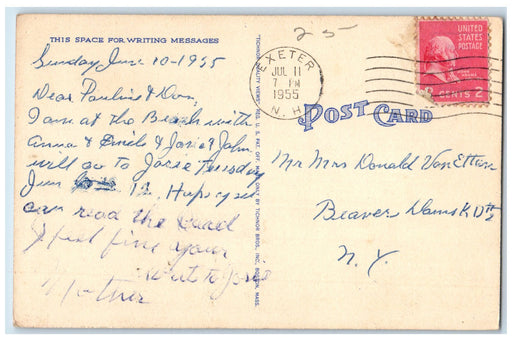 25
THIS SPACE FOR WRITING MESSAGES
Sunday June 10-1955
Dear Pauline & Don,
I am at the Beach with
Anna & Emile & Josie & John
will go to Josie Tuesday
Jun 12, Hope you
can read the card
I feel fine your
Write to Josie
Mother
EXETER
JUL 11
7 PM
1955
N. H.
UNITED
STATES
POSTAGE
CENTS 2
POST CARD
Mr Mrs Donald Van Etten
Beaver Dams R D #2
N. Y.
"TICHNOR QUALITY VIEWS," REG. U. S. PAT. OFF. MADE ONLY BY TICHNOR BROS., INC., BOSTON, MASS.